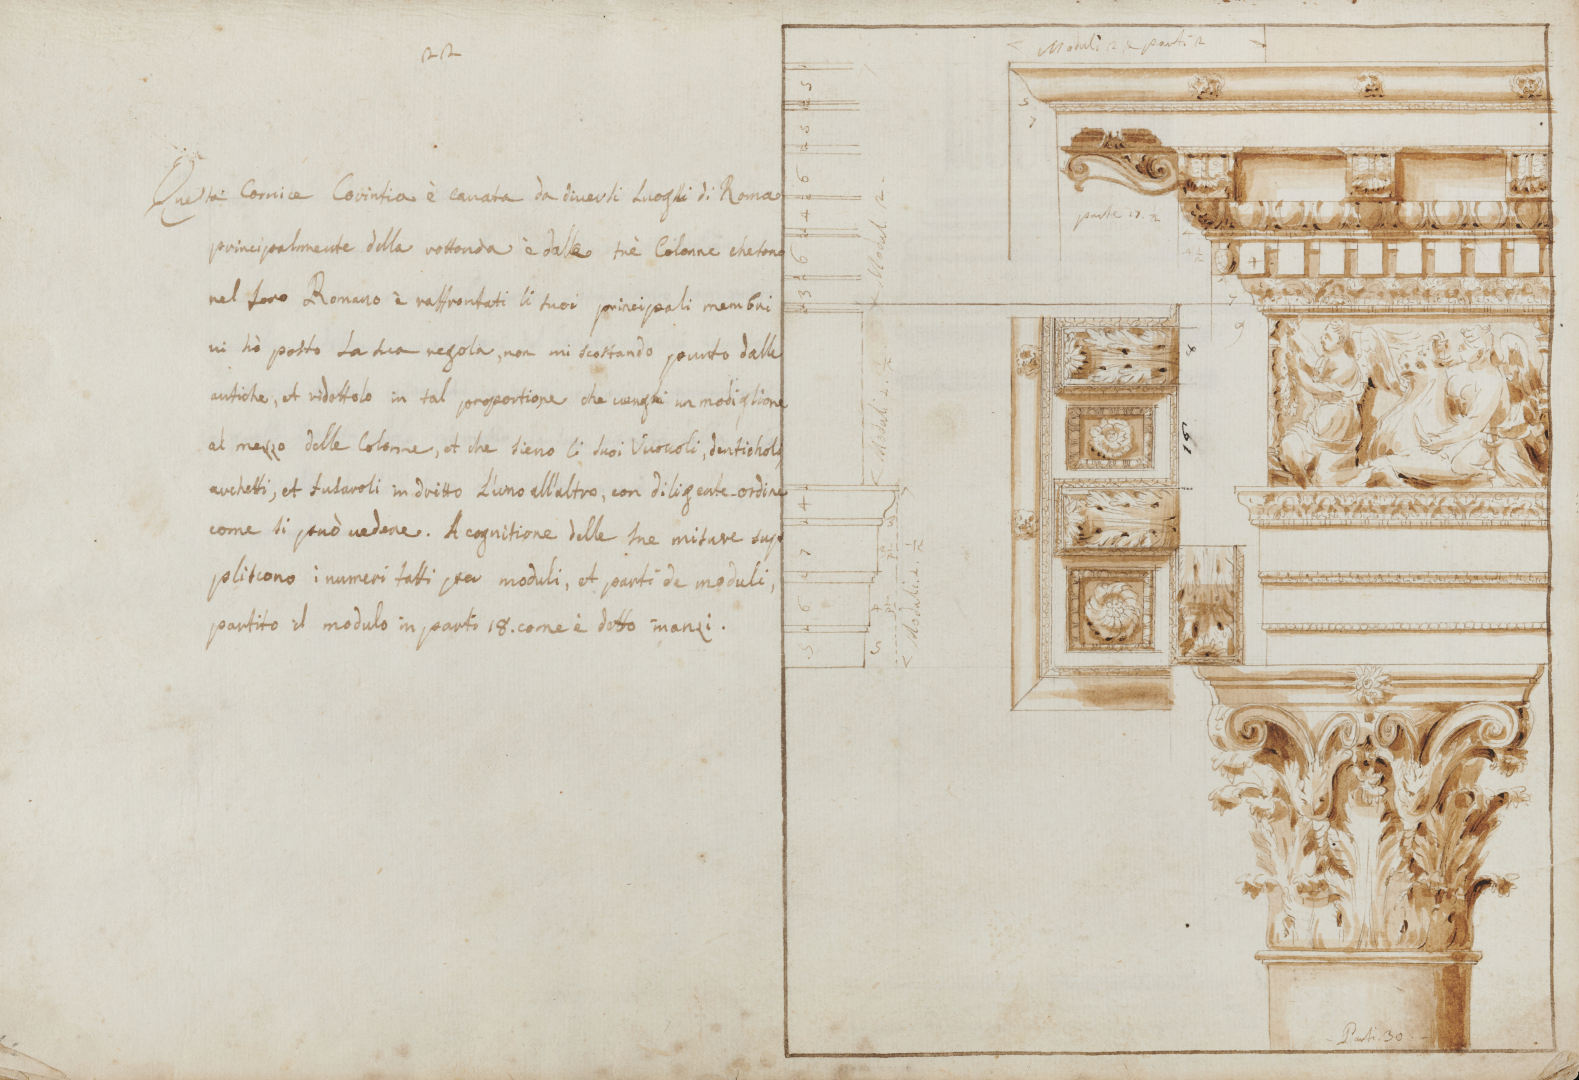 22
Questa Cornice Corintia è cauata da diuersi Luoghi di Roma
principalmente della rottonda è dalle trè Colonne che sono
nel foro Romano è raffrontati li suoi principali membri
ui hò posto La sua regola, non mi scostando punto dalle
antiche, et ridottolo in tal proportione che uenghi un modiglione
al mezzo delle Colonne, et che sieno li suoi Vuouoli, denticholi,
archetti, et fusaroli in dritto L'uno all'altro, con diligente ordine
come si può uedere. A cognitione delle sue misure sup
pliscono i numeri fatti per moduli, et parti de moduli,
partito il modulo in parti 18. come è detto inanzi.
Moduli 2 e parti 2
5
3
6
4
6
3
Modul. 2.
Moduli 2. ½
4
7
6
5
5
Moduli. 2. ½
parte 17. ½
4 ½
7
9
8
16
Parti 30